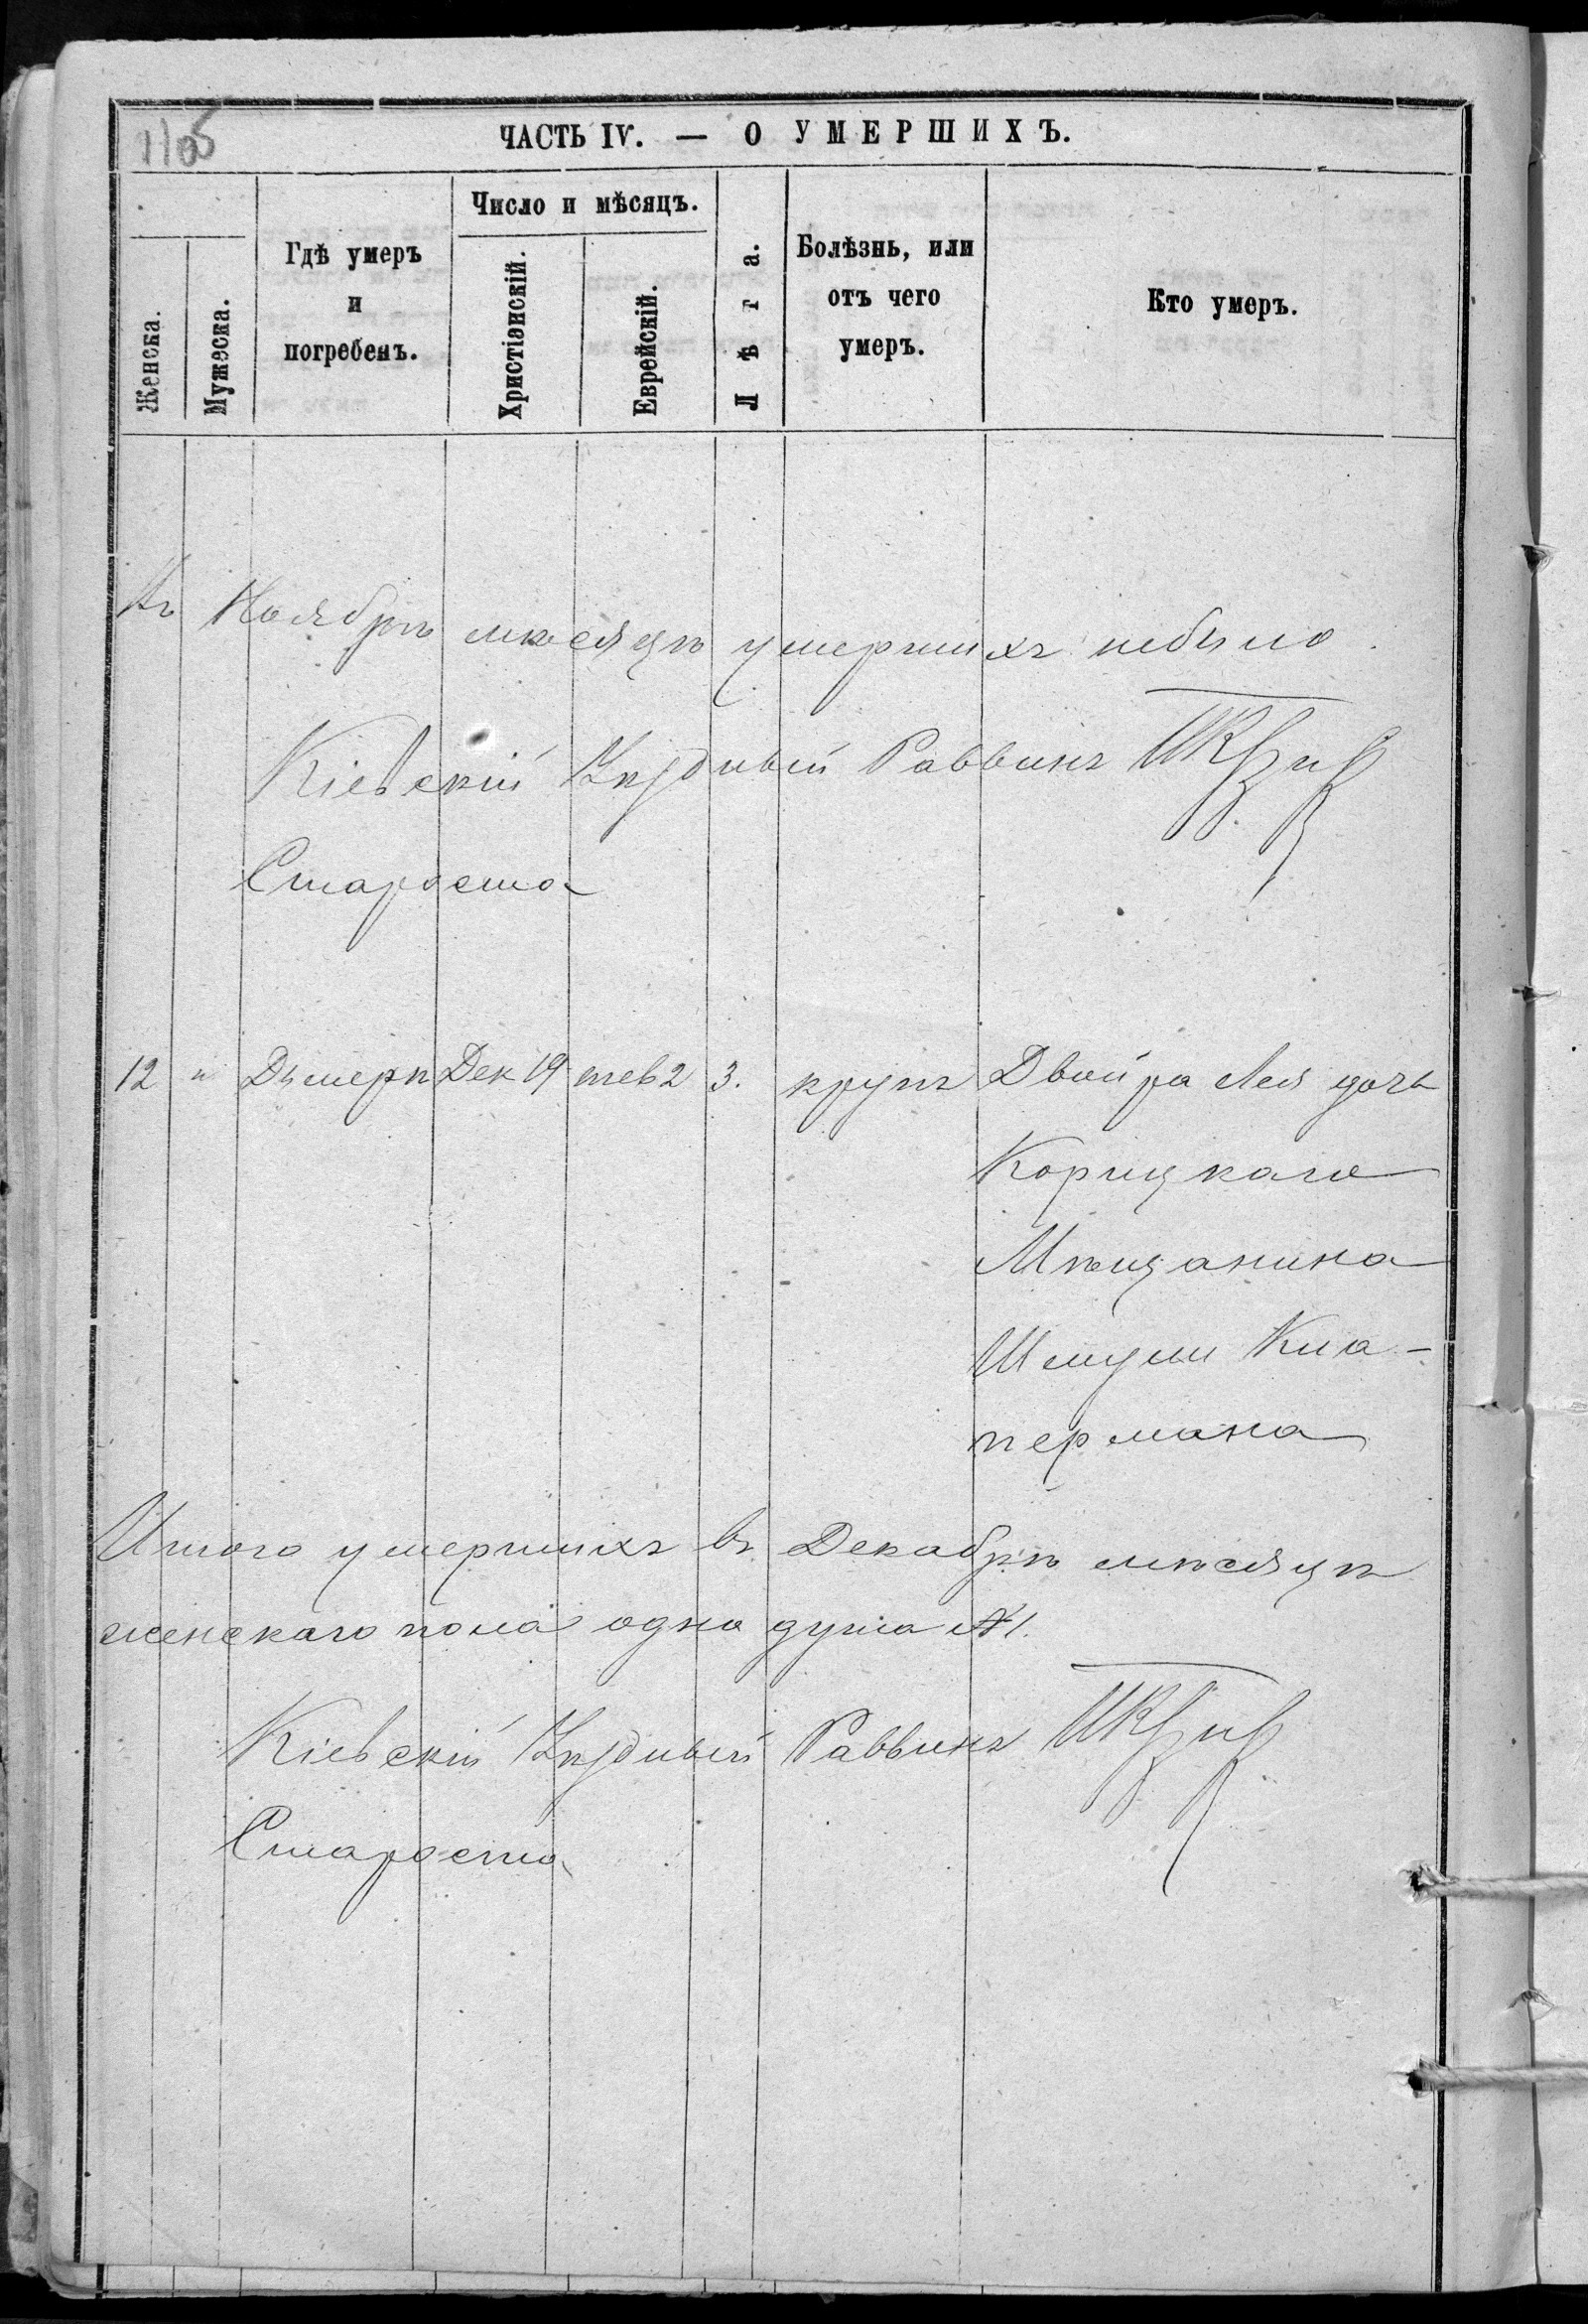 1105
ЧАСТЬ IV. — О УМЕРШИХЪ.
Женска.
Мужеска.
Гдѣ умеръ
и
погребенъ.
Число и мѣсяцъ.
Христіанскій.
Еврейскій.
Лѣта.
Болѣзнь, или
отъ чего
умеръ.
Кто умеръ.
Въ Ноябрѣ мѣсяцѣ умершихъ небыло.
Кіевскій Уѣздный Раввинъ
Староста
12 " Дымерѣ Дек 19 тев 2 3. крупъ Двойра Лея дочь
Корицкаго
Мѣщанина
Шмули Кла-
пермана
Итого умершихъ въ Декабрѣ мѣсяцѣ
женскаго пола одна душа №1.
Кіевскій Уѣздный Раввинъ
Староста